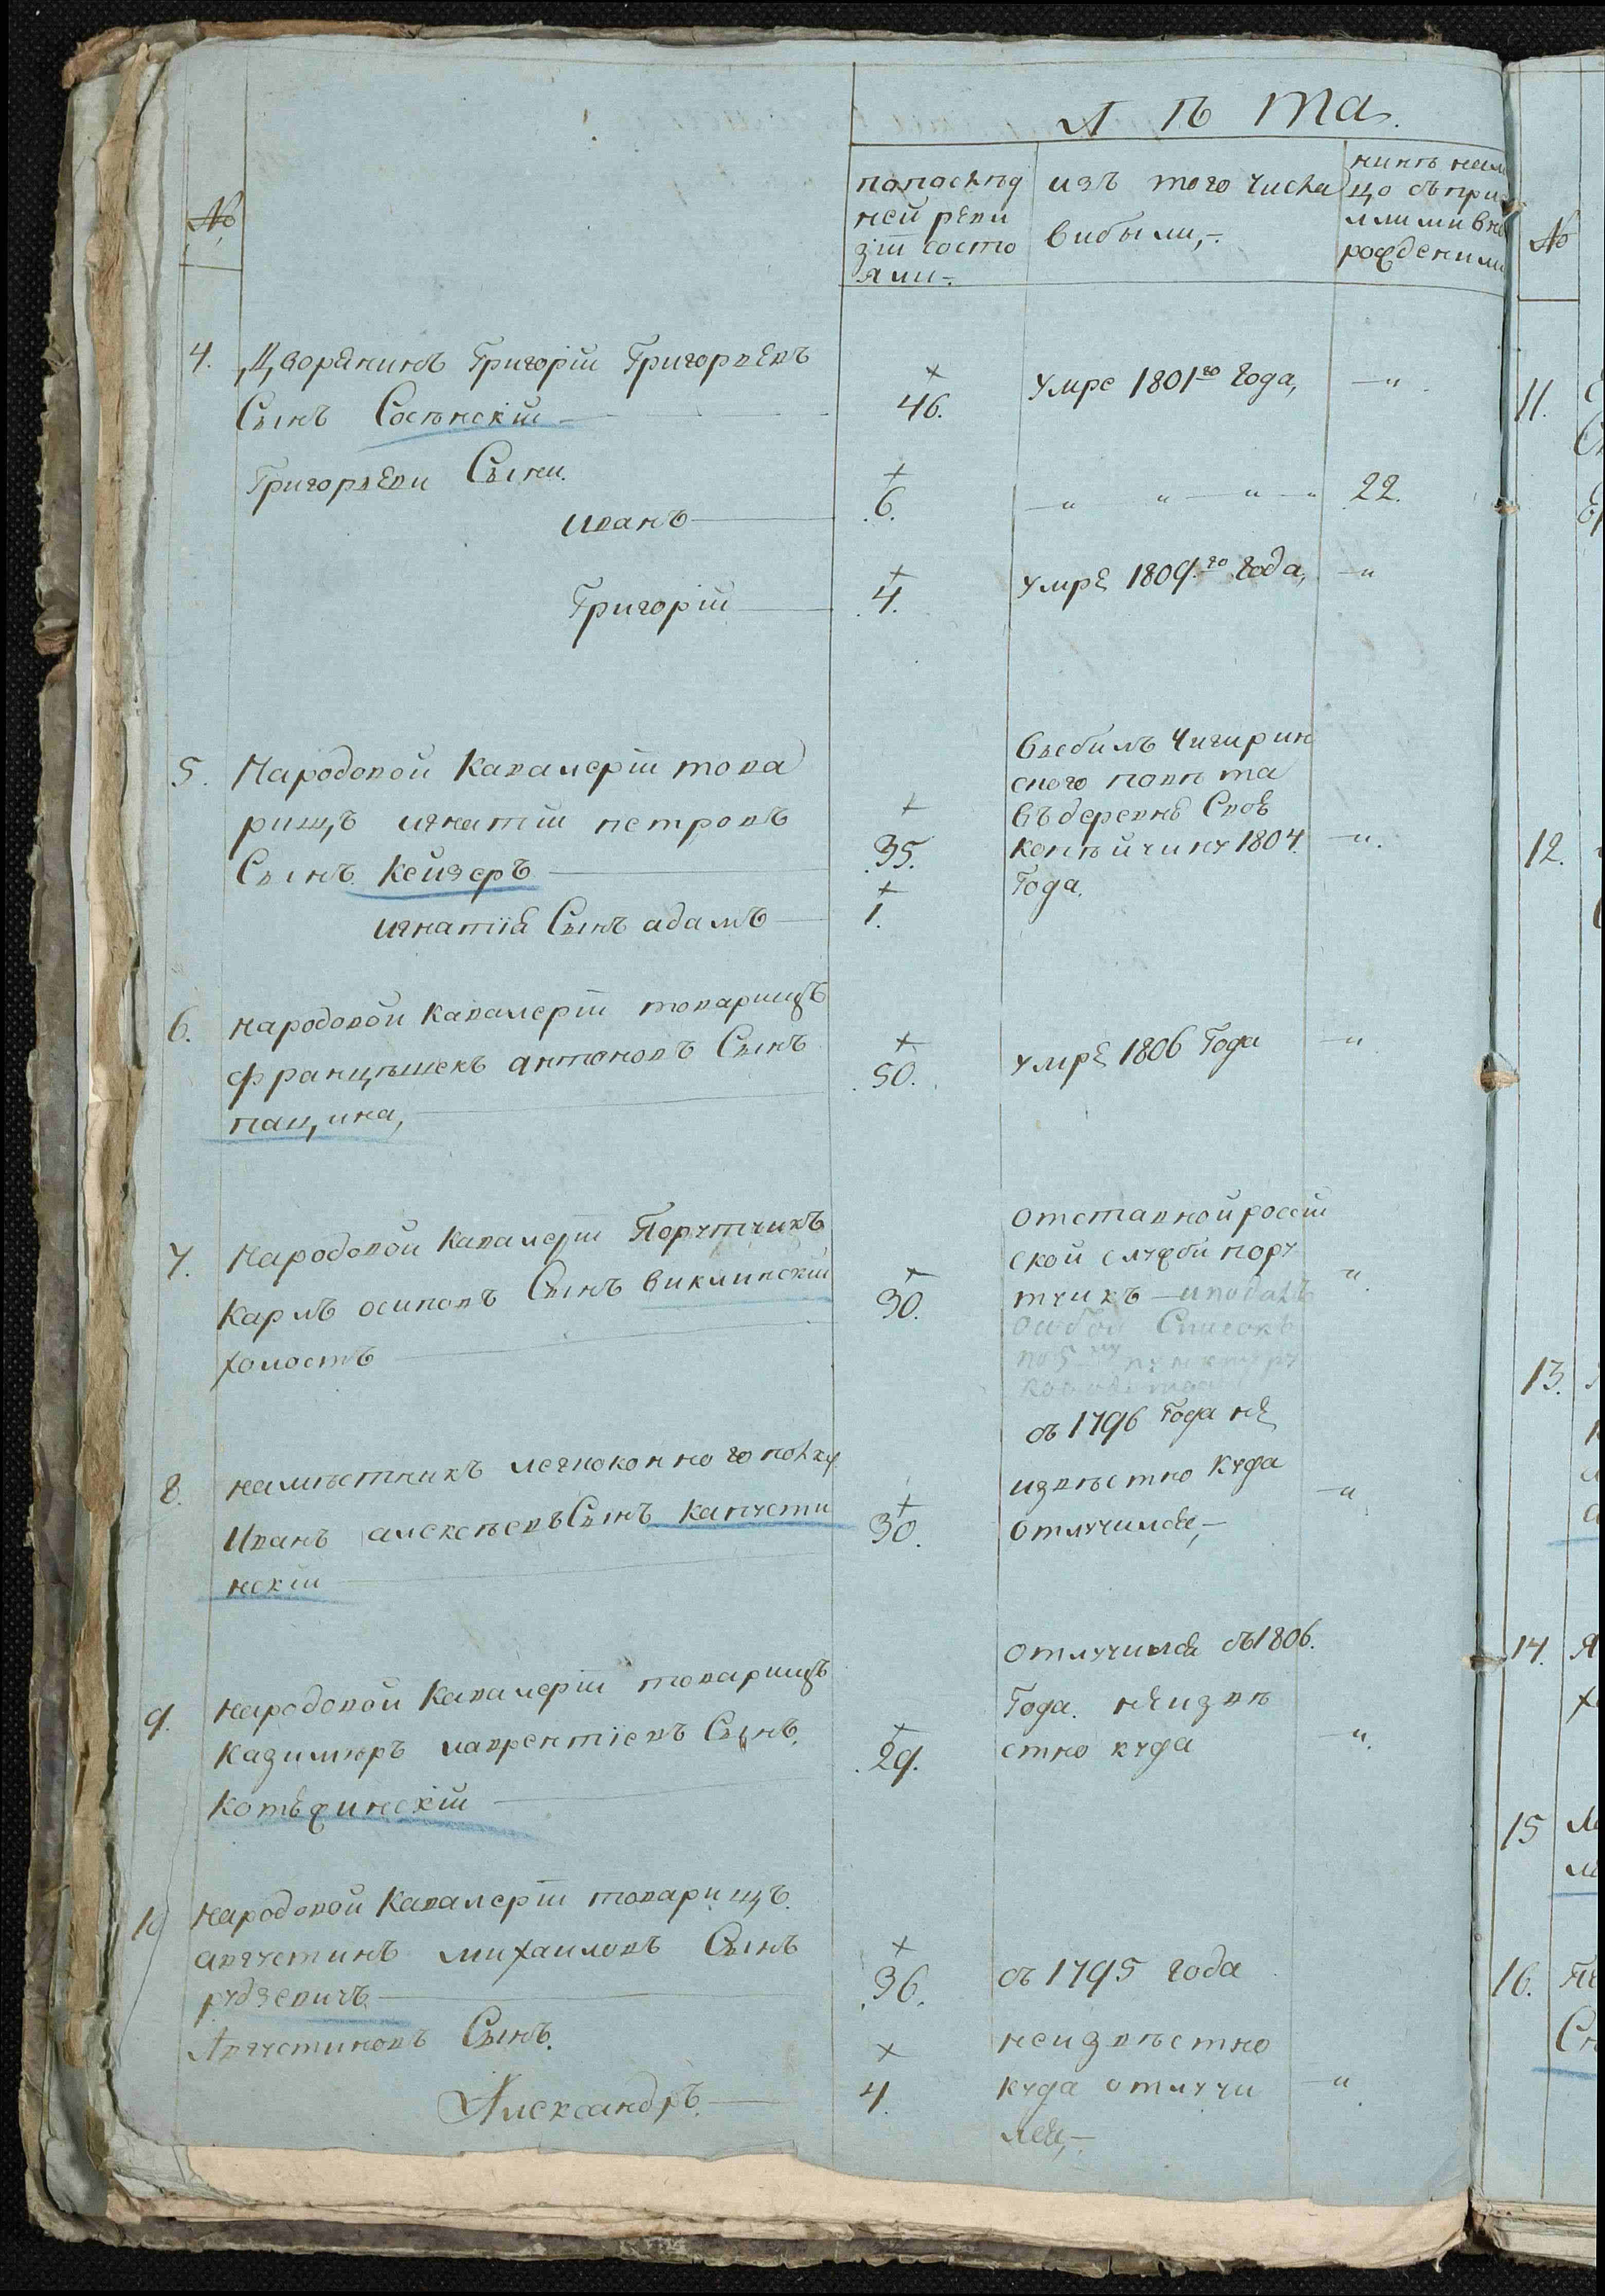 Лѣта.
№
попослѣд
ней реви
зіи состо
яли-.
изъ того числа
выбыли,-.
нынѣ нали
цо съпри
рождеными
№
4. Дворянинъ Григорій Григорьевъ
Сынъ Сосѣнскій
46.
Умре 1801го Года,
—"
Григорьевы Сыны.
Иванъ
6.
22.
Григорій
4.
Умре 1809.го Года,
—"
5. Народовой Кавалеріи това
рищъ игнатій петровъ
Сынъ Кейзеръ
35.
выбылъ Чигирин
ского повѣта
въдеревнѣ
1804.
Года.
—"
игнатія Сынъ адамъ
1.
6. народовой Кавалеріи товарищъ
францѣшекъ антоновъ Сынъ
пащина,
50.
умре 1806 Года
—"
7. Народовой Кавалеріи Порутчикъ
Карлъ осиповъ Сынъ виклинскій
холостъ
30.
отставной россій
ской службы пору
тчикъ — иподалъ
особой Списокъ
по 5му
"
8. намѣстникъ легкоконного полку
Иванъ алексѣевъ Сынъ капусти
нскій
30.
съ 1796 Года не
извѣстно куда
отлучился,-
—"
9. народовой Кавалеріи товарищъ
Казимиръ лаврентіевъ Сынъ
Котѣжинскій
29.
отлучился съ1806.
Года. неизвѣ
стно куда
"
10 народовой Кавалеріи товарищъ.
августинъ михаиловъ Сынъ
рудзевичъ
36.
съ 1795 года
неизвѣстно
куда отлучи
лся,-
Августиновъ Сынъ.
Александръ.
4.
—"
11.
12.
13.
14.
15
16.